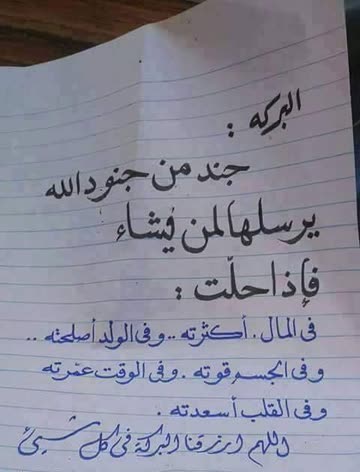 البركه :
جند من جنود الله
يرسلها لمن يشاء
فإذا حلّت :
فى المال . أكثرته .. وفى الولد أصلحته ..
وفى الجسم قوته . وفى الوقت عمّرته
وفى القلب أسعدته .
اللهم ارزقنا البركة فى كل شيئ